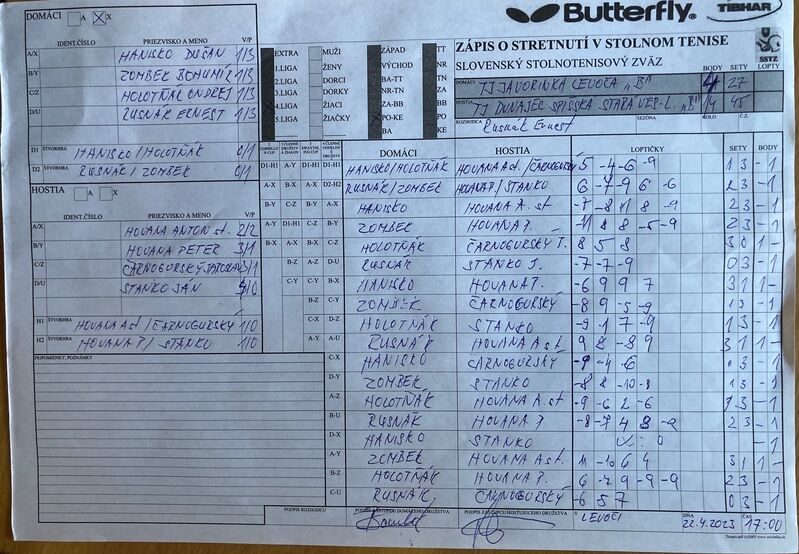 DOMÁCI A X
Butterfly TIBHAR
IDENT.ČÍSLO PRIEZVISKO A MENO V/P
A/X HANISKO DUŠAN 1/3
B/Y ZOMBEK BOHUMÍR 1/3
C/Z HOLOTŇÁK ONDREJ 1/3
D/U RUSNÁK ERNEST 1/3
EXTRA MUŽI ZÁPAD TT
1.LIGA ŽENY VÝCHOD NR
2.LIGA DORCI BA-TT TN
3.LIGA DORKY NR-TN ZA
4.LIGA ŽIACI ZA-BB BB
5.LIGA ŽIAČKY PO-KE PO
BA KE
ZÁPIS O STRETNUTÍ V STOLNOM TENISE
SLOVENSKÝ STOLNOTENISOVÝ ZVÄZ
SSTZ
BODY SETY LOPTY
DOMÁCI TJ JAVORINKA LEVOČA „B" 4 27
HOSTIA TJ DUNAJEC SPIŠSKÁ STARÁ VES-L. „B" 14 45
ROZHODCA Rusnák Ernest SEZÓNA KOLO Č.Z.
D1 ŠTVORHRA HANISKO/HOLOTŇÁK 0/1
D2 ŠTVORHRA RUSNÁK/ZOMBEK 0/1
HOSTIA A X
IDENT.ČÍSLO PRIEZVISKO A MENO V/P
A/X HOVANA ANTON st. 2/2
B/Y HOVANA PETER 3/1
C/Z ČARNOGURSKÝ JAROSLAV 3/1
D/U STANKO JÁN /0
H1 ŠTVORHRA HOVANA A st/ČARNOGURSKÝ 1/0
H2 ŠTVORHRA HOVANA P./STANKO 1/0
PRIPOMIENKY, POZNÁMKY
DOMÁCI HOSTIA LOPTIČKY SETY BODY
D1-H1 A-Y D1-H1 D1-H1 HANISKO/HOLOTŇÁK HOVANA A st./ČARNOGURSKÝ 5 -4 -6 -9 1 3 - 1
A-X B-X A-X D2-H2 RUSNÁK/ZOMBEK HOVANA P./STANKO 6 -7 -9 6 -6 2 3 - 1
B-Y C-Z B-Y A-X HANISKO HOVANA A. st -7 -8 11 8 -9 2 3 - 1
A-Y D1-H1 C-Z B-Y ZOMBEK HOVANA P. -11 8 8 -5 -9 2 3 - 1
B-X A-X B-X C-Z HOLOTŇÁK ČARNOGURSKÝ J. 8 5 8 3 0 1 -
B-Z A-Z D-U RUSNÁK STANKO J. -7 -7 -9 0 3 - 1
C-Y C-Y B-X HANISKO HOVANA P. -6 9 9 7 3 1 1 -
B-Z C-Y ZOMBEK ČARNOGURSKÝ -8 9 -5 -9 1 3 - 1
C-X D-Z HOLOTŇÁK STANKO -9 -1 7 -9 1 3 - 1
A-Y A-U RUSNÁK HOVANA A st. 9 8 -8 9 3 1 1 -
C-X HANISKO ČARNOGURSKÝ -9 -4 -6 0 3 - 1
D-Y ZOMBEK STANKO -8 8 -10 -8 1 3 - 1
A-Z HOLOTŇÁK HOVANA A st -9 -6 2 -6 1 3 - 1
B-U RUSNÁK HOVANA P -8 -7 4 8 -2 2 3 - 1
D-X HANISKO STANKO : 0 - 1
A-Y ZOMBEK HOVANA A st. 11 -10 6 4 3 1 1 -
B-Z HOLOTŇÁK HOVANA P. 6 -7 9 -9 -9 2 3 - 1
C-U RUSNÁK ČARNOGURSKÝ -6 5 7 0 3 - 1
PODPIS ROZHODCU PODPIS ZÁSTUPCU DOMÁCEHO DRUŽSTVA PODPIS ZÁSTUPCU HOSŤUJÚCEHO DRUŽSTVA V LEVOČI DŇA 22.4.2023 ČAS 17:00